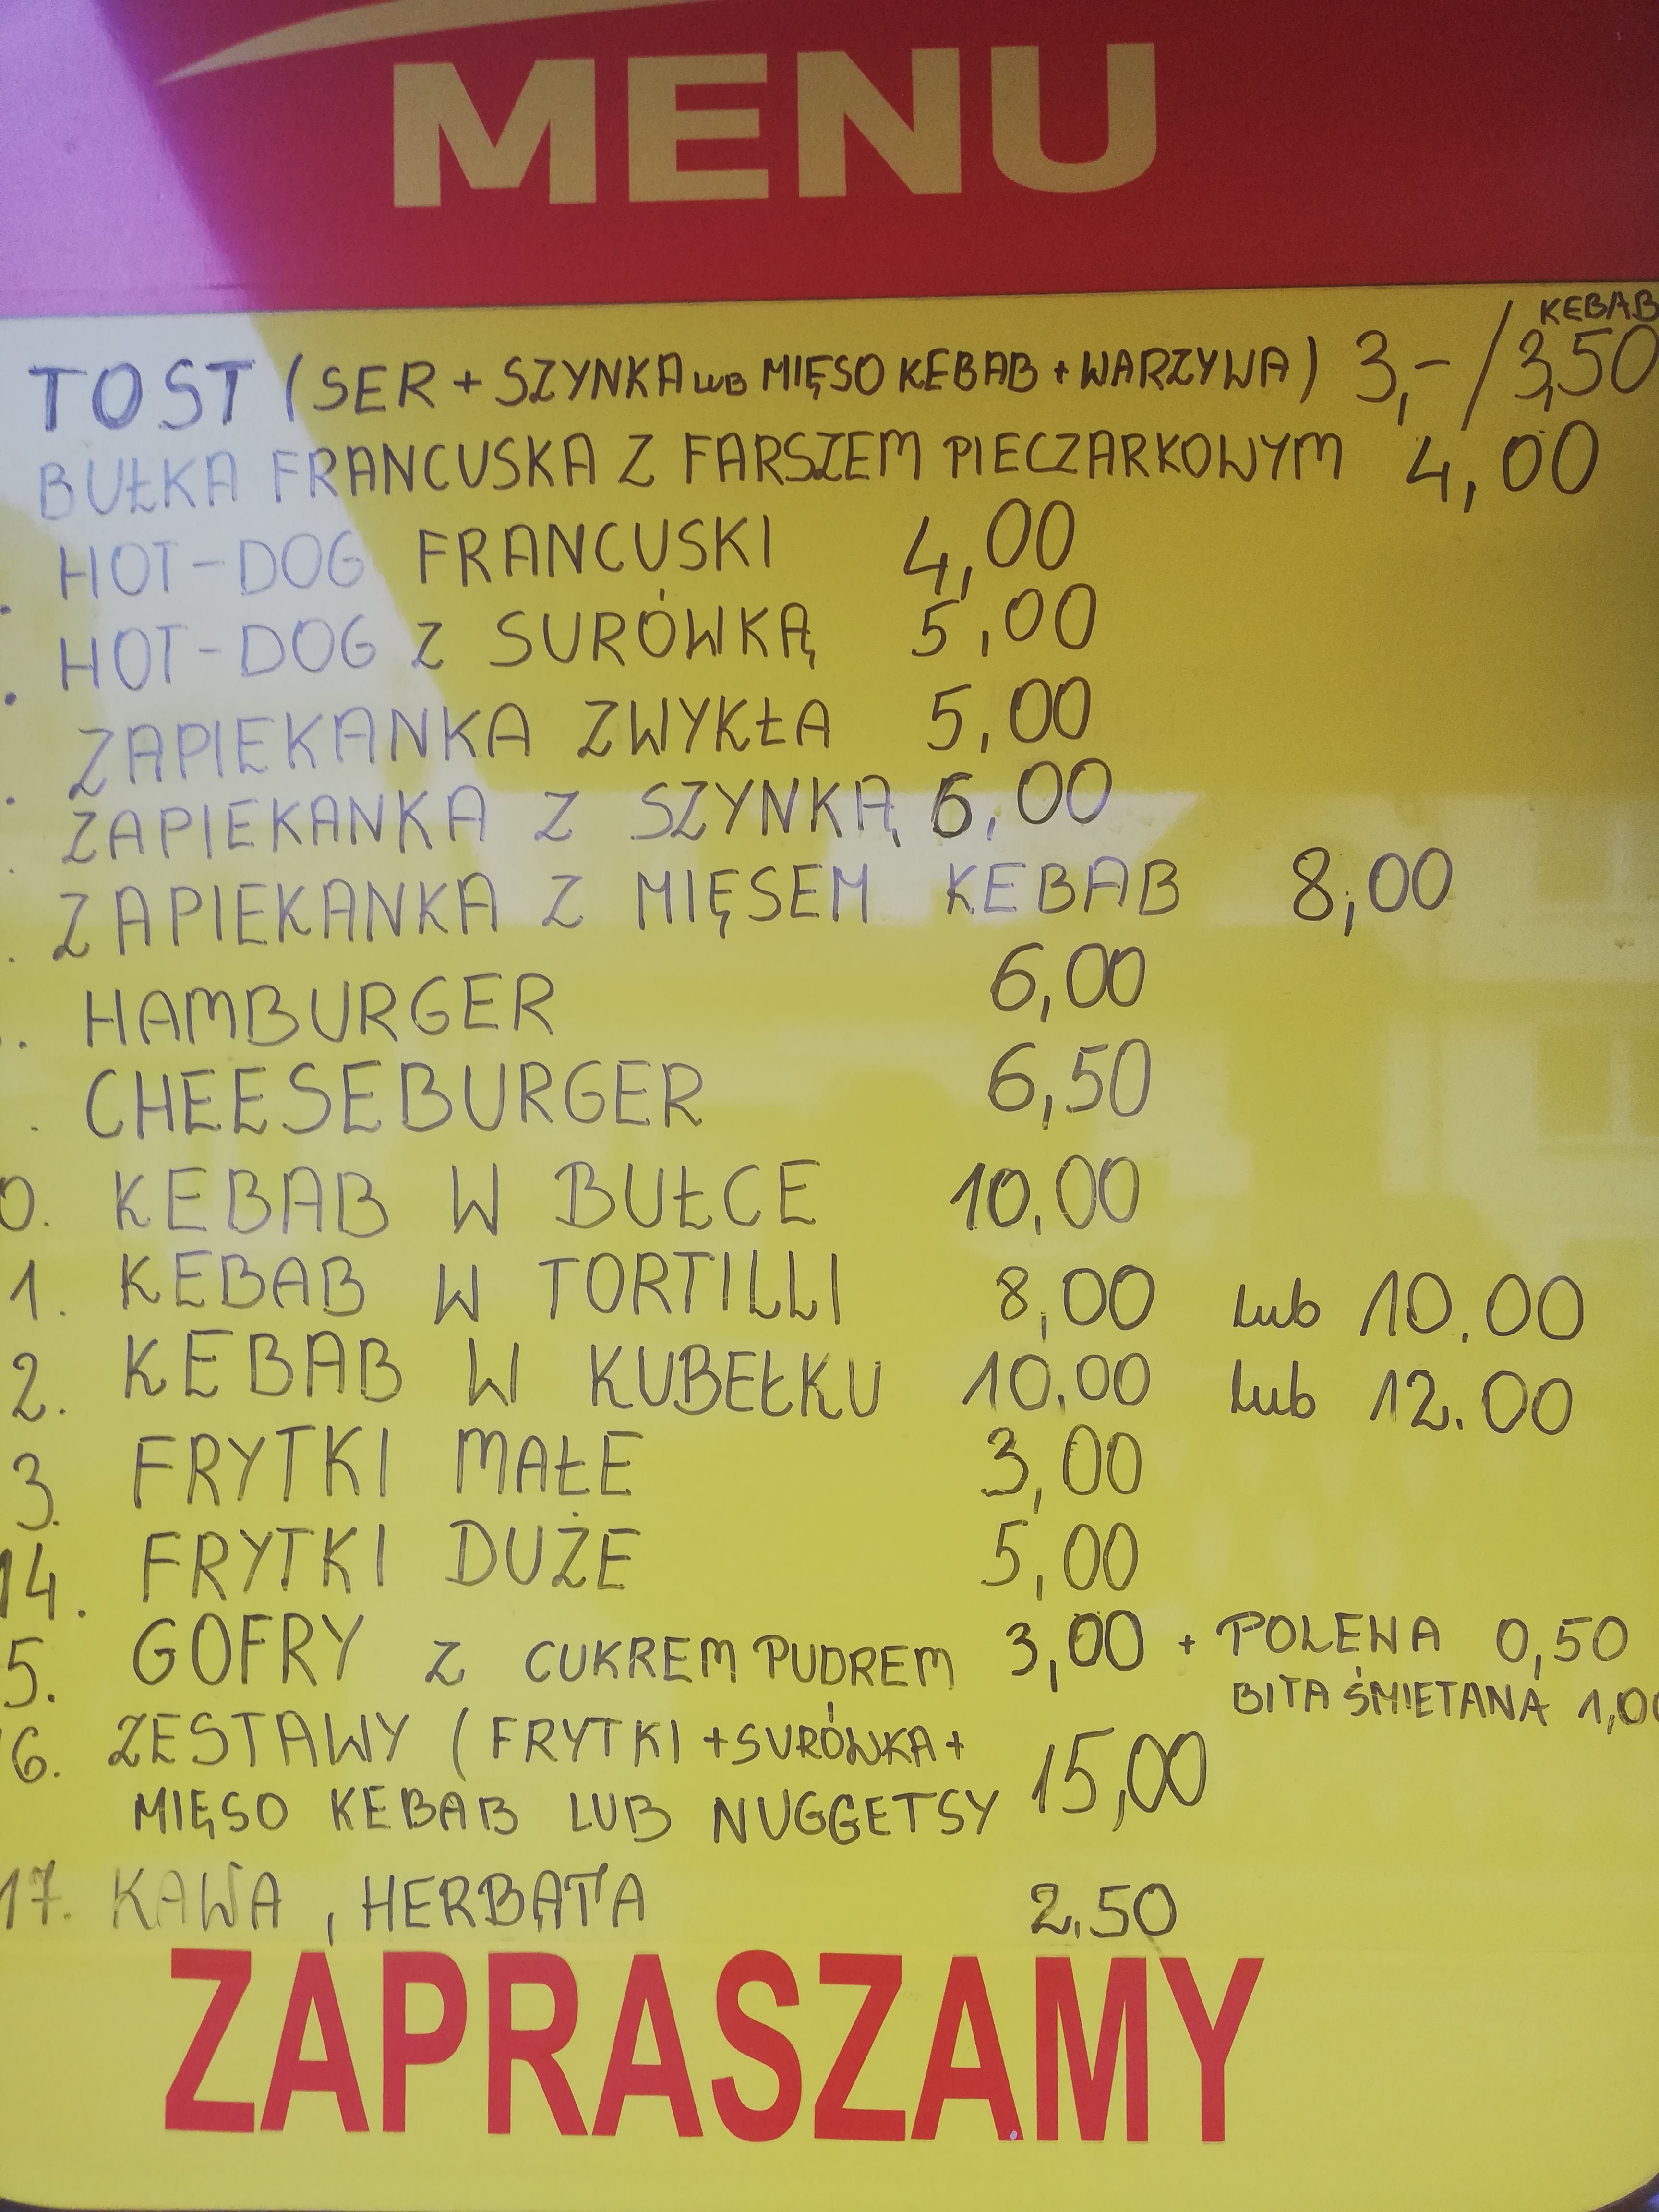 MENU
KEBAB
TOST (SER + SZYNKA LUB MIĘSO KEBAB + WARZYWA) 3,- / 3,50
BUŁKA FRANCUSKA Z FARSZEM PIECZARKOWYM 4,00
. HOT-DOG FRANCUSKI 4,00
. HOT-DOG Z SURÓWKĄ 5,00
. ZAPIEKANKA ZWYKŁA 5,00
. ZAPIEKANKA Z SZYNKĄ 6,00
. ZAPIEKANKA Z MIĘSEM KEBAB 8,00
. HAMBURGER 6,00
. CHEESEBURGER 6,50
0. KEBAB W BUŁCE 10,00
1. KEBAB W TORTILLI 8,00 lub 10.00
2. KEBAB W KUBEŁKU 10.00 lub 12.00
3. FRYTKI MAŁE 3,00
14. FRYTKI DUŻE 5,00
5. GOFRY Z CUKREM PUDREM 3,00 + POLEWA 0,50
BITA ŚMIETANA 1,00
6. ZESTAWY (FRYTKI + SURÓWKA +
MIĘSO KEBAB LUB NUGGETSY 15,00
17. KAWA, HERBATA 2.50
ZAPRASZAMY